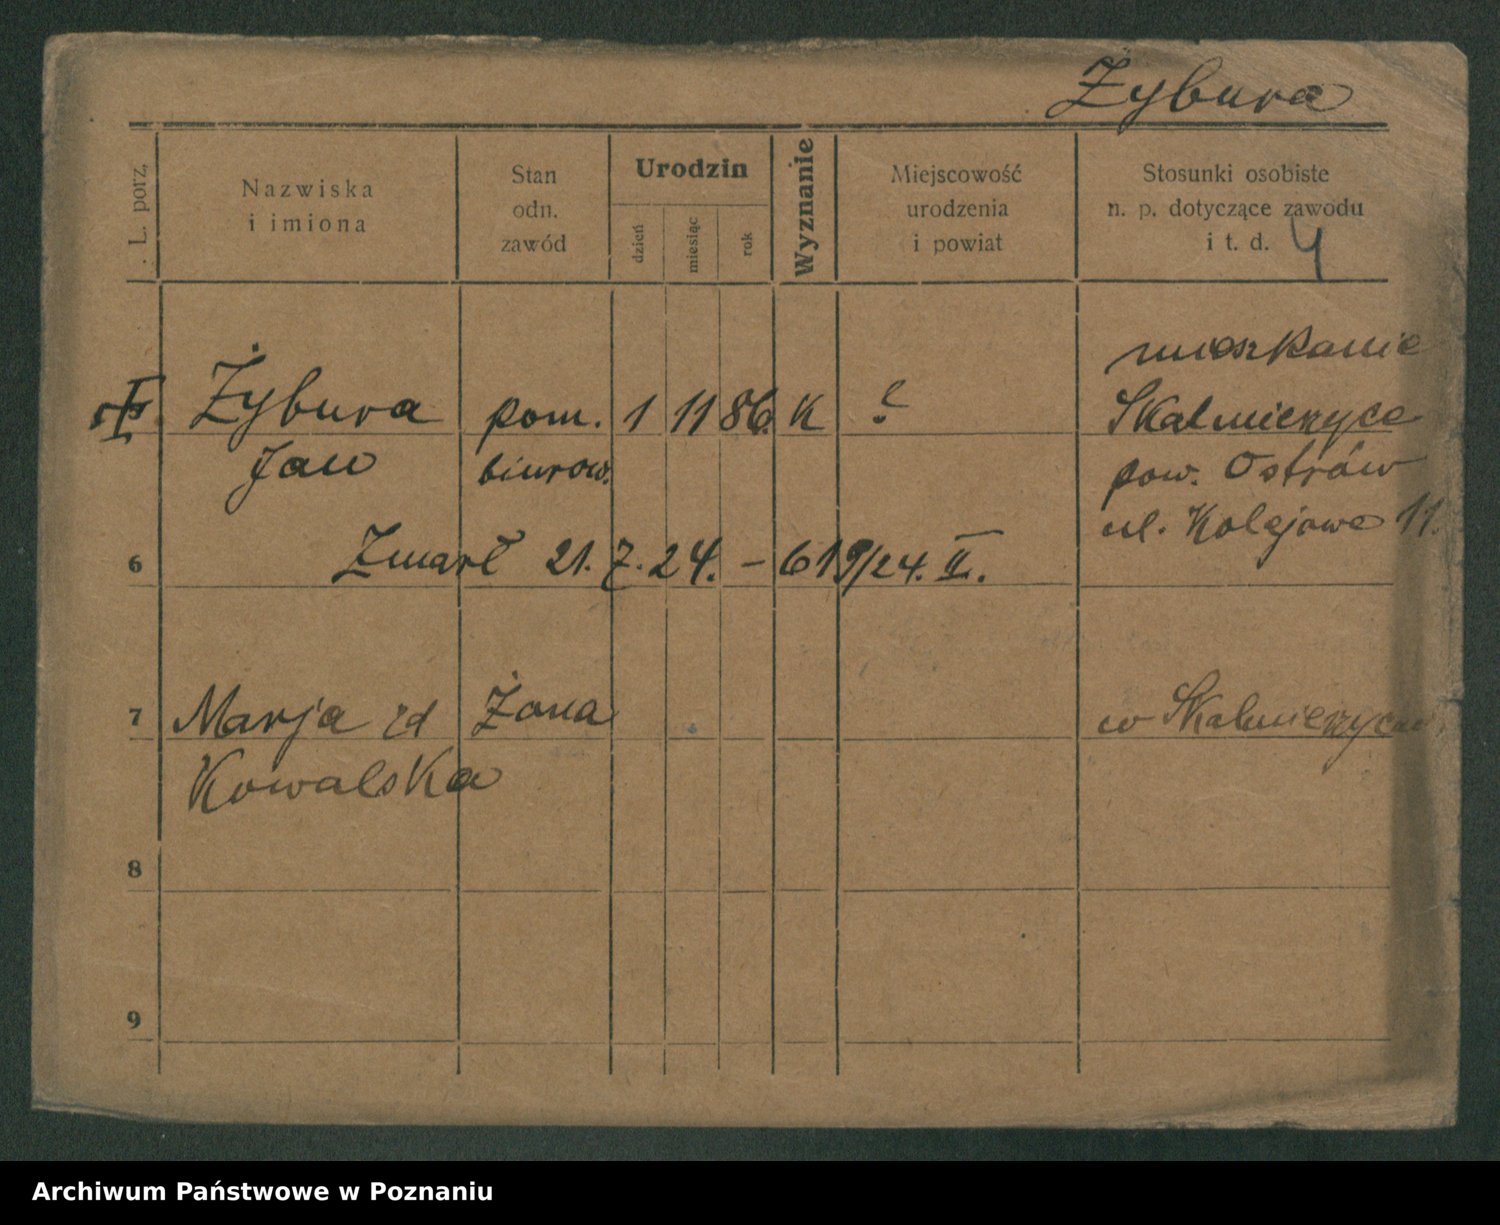 Żybura
L. porz.
Nazwiska
i imiona
Stan
odn.
zawód
Urodzin
dzień
miesiąc
rok
Wyznanie
Miejscowość
urodzenia
i powiat
Stosunki osobiste
n. p. dotyczące zawodu
i t. d. 4
Żybura pom. 1 11 86. K ?
Jan biurow.
mieszkanie
Skalmierzyce
pow. Ostrów
ul. Kolejowa 11.
6 Zmarł 21. 7. 24. – 619/24. II.
7 Marja zd Żona w Skalmierzycach
Kowalska
8
9
Archiwum Państwowe w Poznaniu